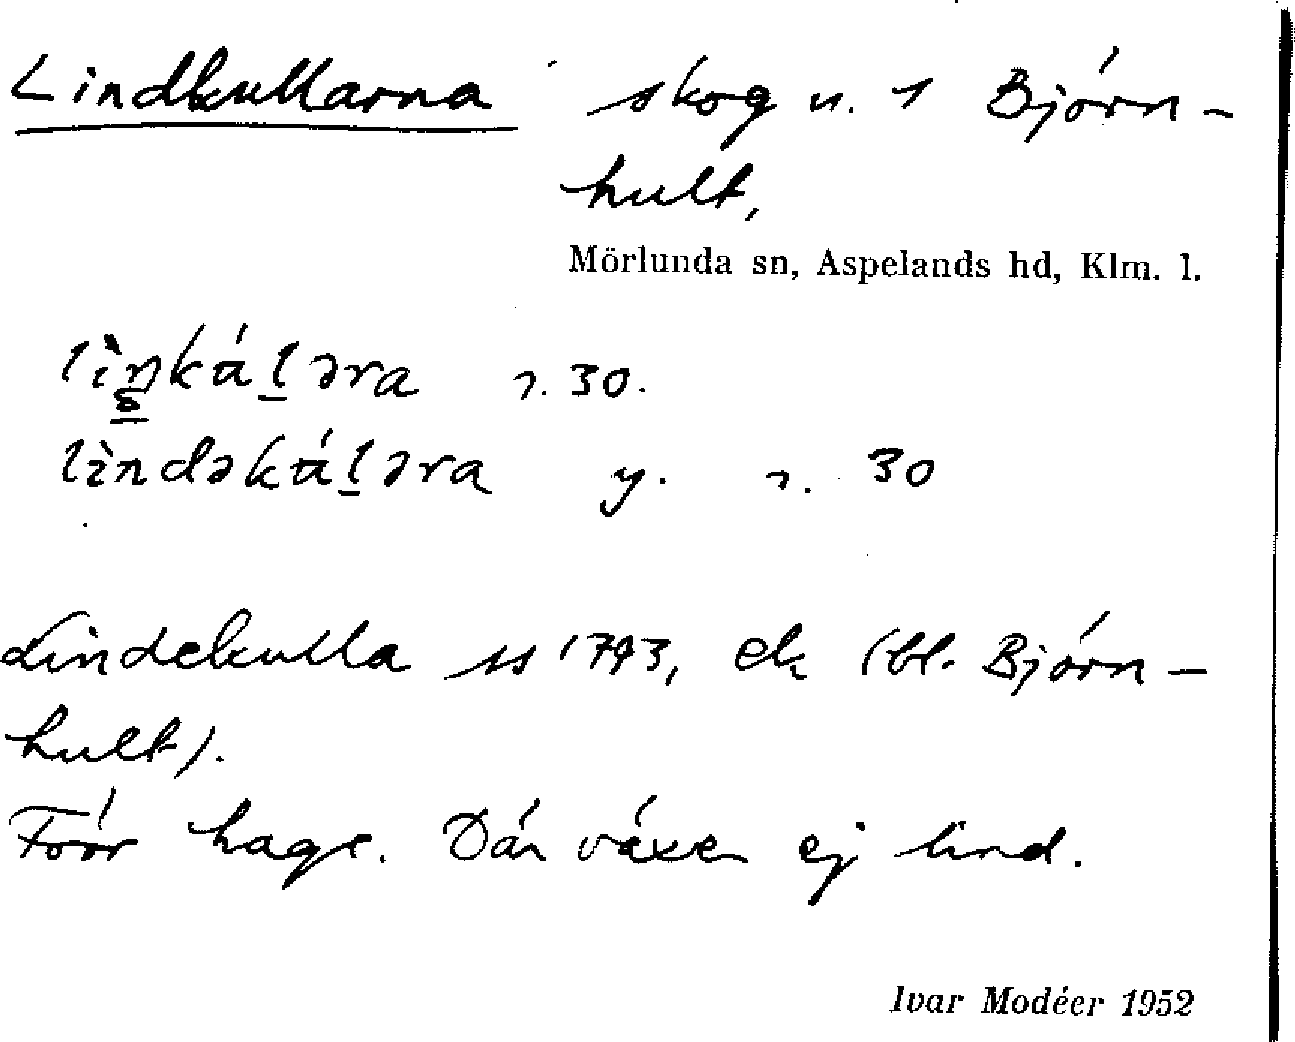 Lindkullarna skog u. 1 Björn-
hult,
Mörlunda sn, Aspelands hd, Klm. l.
lìŋká̱ləra r. 30.
lìndəká̱ləra y. r. 30
Lindekulla ss 1793, ek (bl. Björn-
hult).
Förr hage. Där växer ej lind.
Ivar Modéer 1952